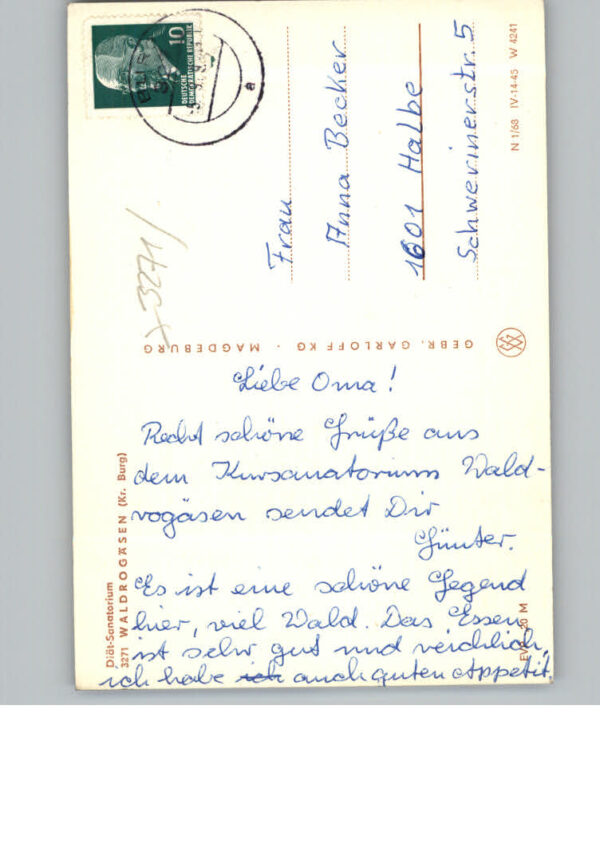 10
DEUTSCHE
DEMOKRATISCHE REPUBLIK
a
Frau
Anna Becker
1601 Halbe
Schwerinerstr. 5
N 1/63 IV-14-45 W 4241
x 3271/
GEBR. GARLOFF KG · MAGDEBURG
Liebe Oma!
Recht schöne Grüße aus
dem Kursanatorium Wald-
rogäsen sendet Dir
Günter.
Es ist eine schöne Gegend
hier, viel Wald. Das Essen
ist sehr gut und reichlich,
ich habe ich auch guten Appetit.
Diät-Sanatorium
3271 WALDROGÄSEN (Kr. Burg)
EVP 20 M